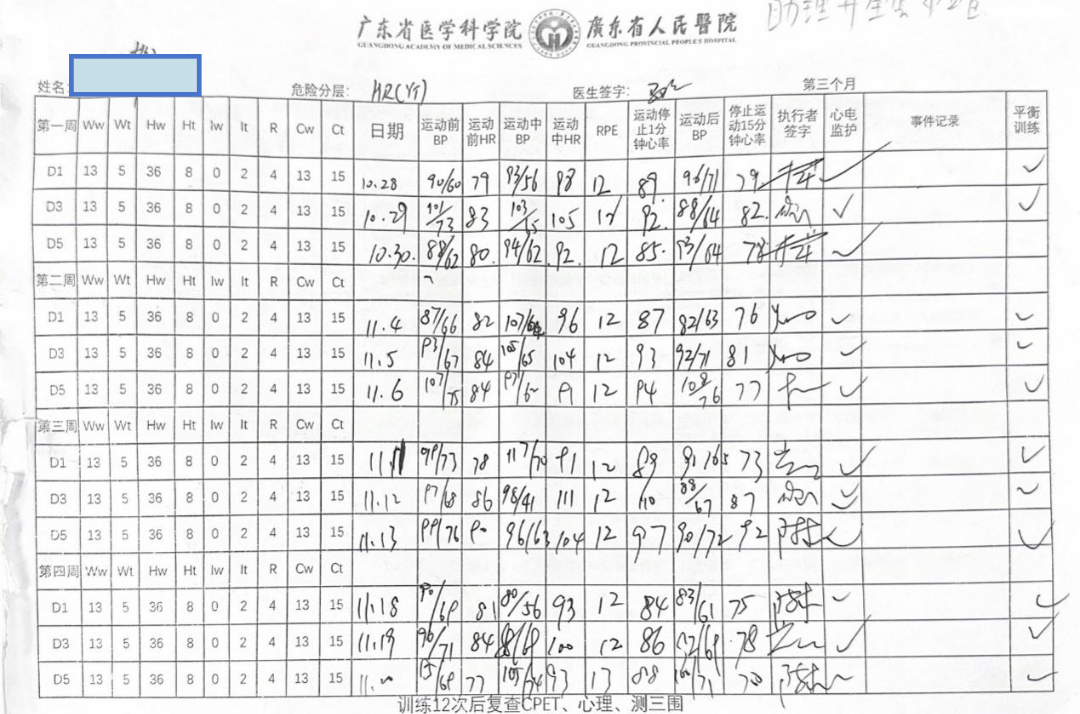 广东省医学科学院 廣東省人民醫院
GUANGDONG ACADEMY OF MEDICAL SCIENCES GUANGDONG PROVINCIAL PEOPLE'S HOSPITAL
姓名: 危险分层: 医生签字: 第三个月
第一周 Ww Wt Hw Ht Iw It R Cw Ct 日期 运动前BP 运动前HR 运动中BP 运动中HR RPE 运动停止1分钟心率 运动后BP 停止运动15分钟心率 执行者签字 心电监护 事件记录 平衡训练
D1 13 5 36 8 0 2 4 13 15 10.28 90/60 79 93/56 98 12 89 96/71 79 ✓ ✓
D3 13 5 36 8 0 2 4 13 15 10.29 101/73 83 103/65 105 12 92 88/64 82 ✓ ✓
D5 13 5 36 8 0 2 4 13 15 10.30 88/62 80 94/62 92 12 85 93/64 78 ✓ ✓
第二周 Ww Wt Hw Ht Iw It R Cw Ct
D1 13 5 36 8 0 2 4 13 15 11.4 87/66 82 96 12 87 82/63 76 ✓ ✓
D3 13 5 36 8 0 2 4 13 15 11.5 93/67 84 105/65 104 12 93 92/71 81 ✓ ✓
D5 13 5 36 8 0 2 4 13 15 11.6 107/75 84 91 12 94 108/76 77 ✓ ✓
第三周 Ww Wt Hw Ht Iw It R Cw Ct
D1 13 5 36 8 0 2 4 13 15 11.11 99/73 78 117/70 91 12 89 91/65 73 ✓ ✓
D3 13 5 36 8 0 2 4 13 15 11.12 97/68 86 98/41 111 12 110 88/67 87 ✓ ✓
D5 13 5 36 8 0 2 4 13 15 11.13 99/76 90 96/63 104 12 97 90/72 92 ✓ ✓
第四周 Ww Wt Hw Ht Iw It R Cw Ct
D1 13 5 36 8 0 2 4 13 15 11.18 90/69 81 80/56 93 12 84 83/61 75 ✓ ✓
D3 13 5 36 8 0 2 4 13 15 11.19 96/71 84 100 12 86 78 ✓ ✓
D5 13 5 36 8 0 2 4 13 15 77 93 13 88 70 ✓ ✓
训练12次后复查CPET、心理、测三围